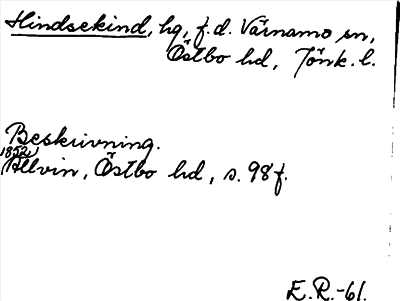 Hindsekind, hg, f.d. Värnamo sn,
Östbo hd, Jönk. l.
Beskrivning.
1852
Allvin, Östbo hd, s. 98 f.
E.R.-61.